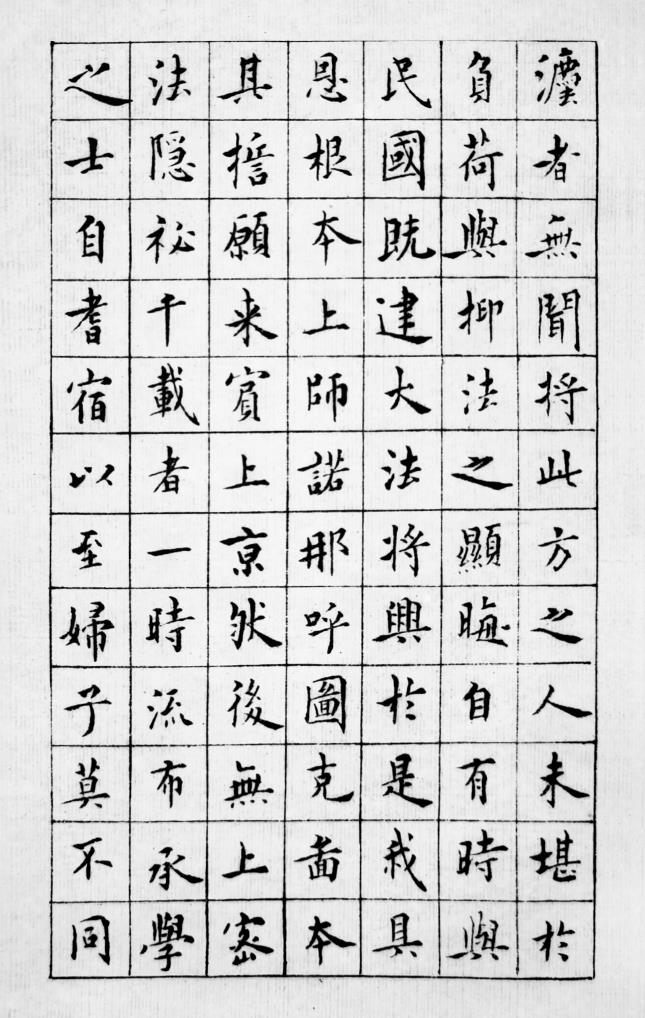 瀍者無聞將此方之人未堪於
負荷與抑法之顯晦自有時與
民國旣建大法將興於是我具
恩根本上師諾那呼圖克啚本
其誓願来賓上京然後無上密
法隱祕千載者一時流布承學
之士自耆宿以至婦子莫不同